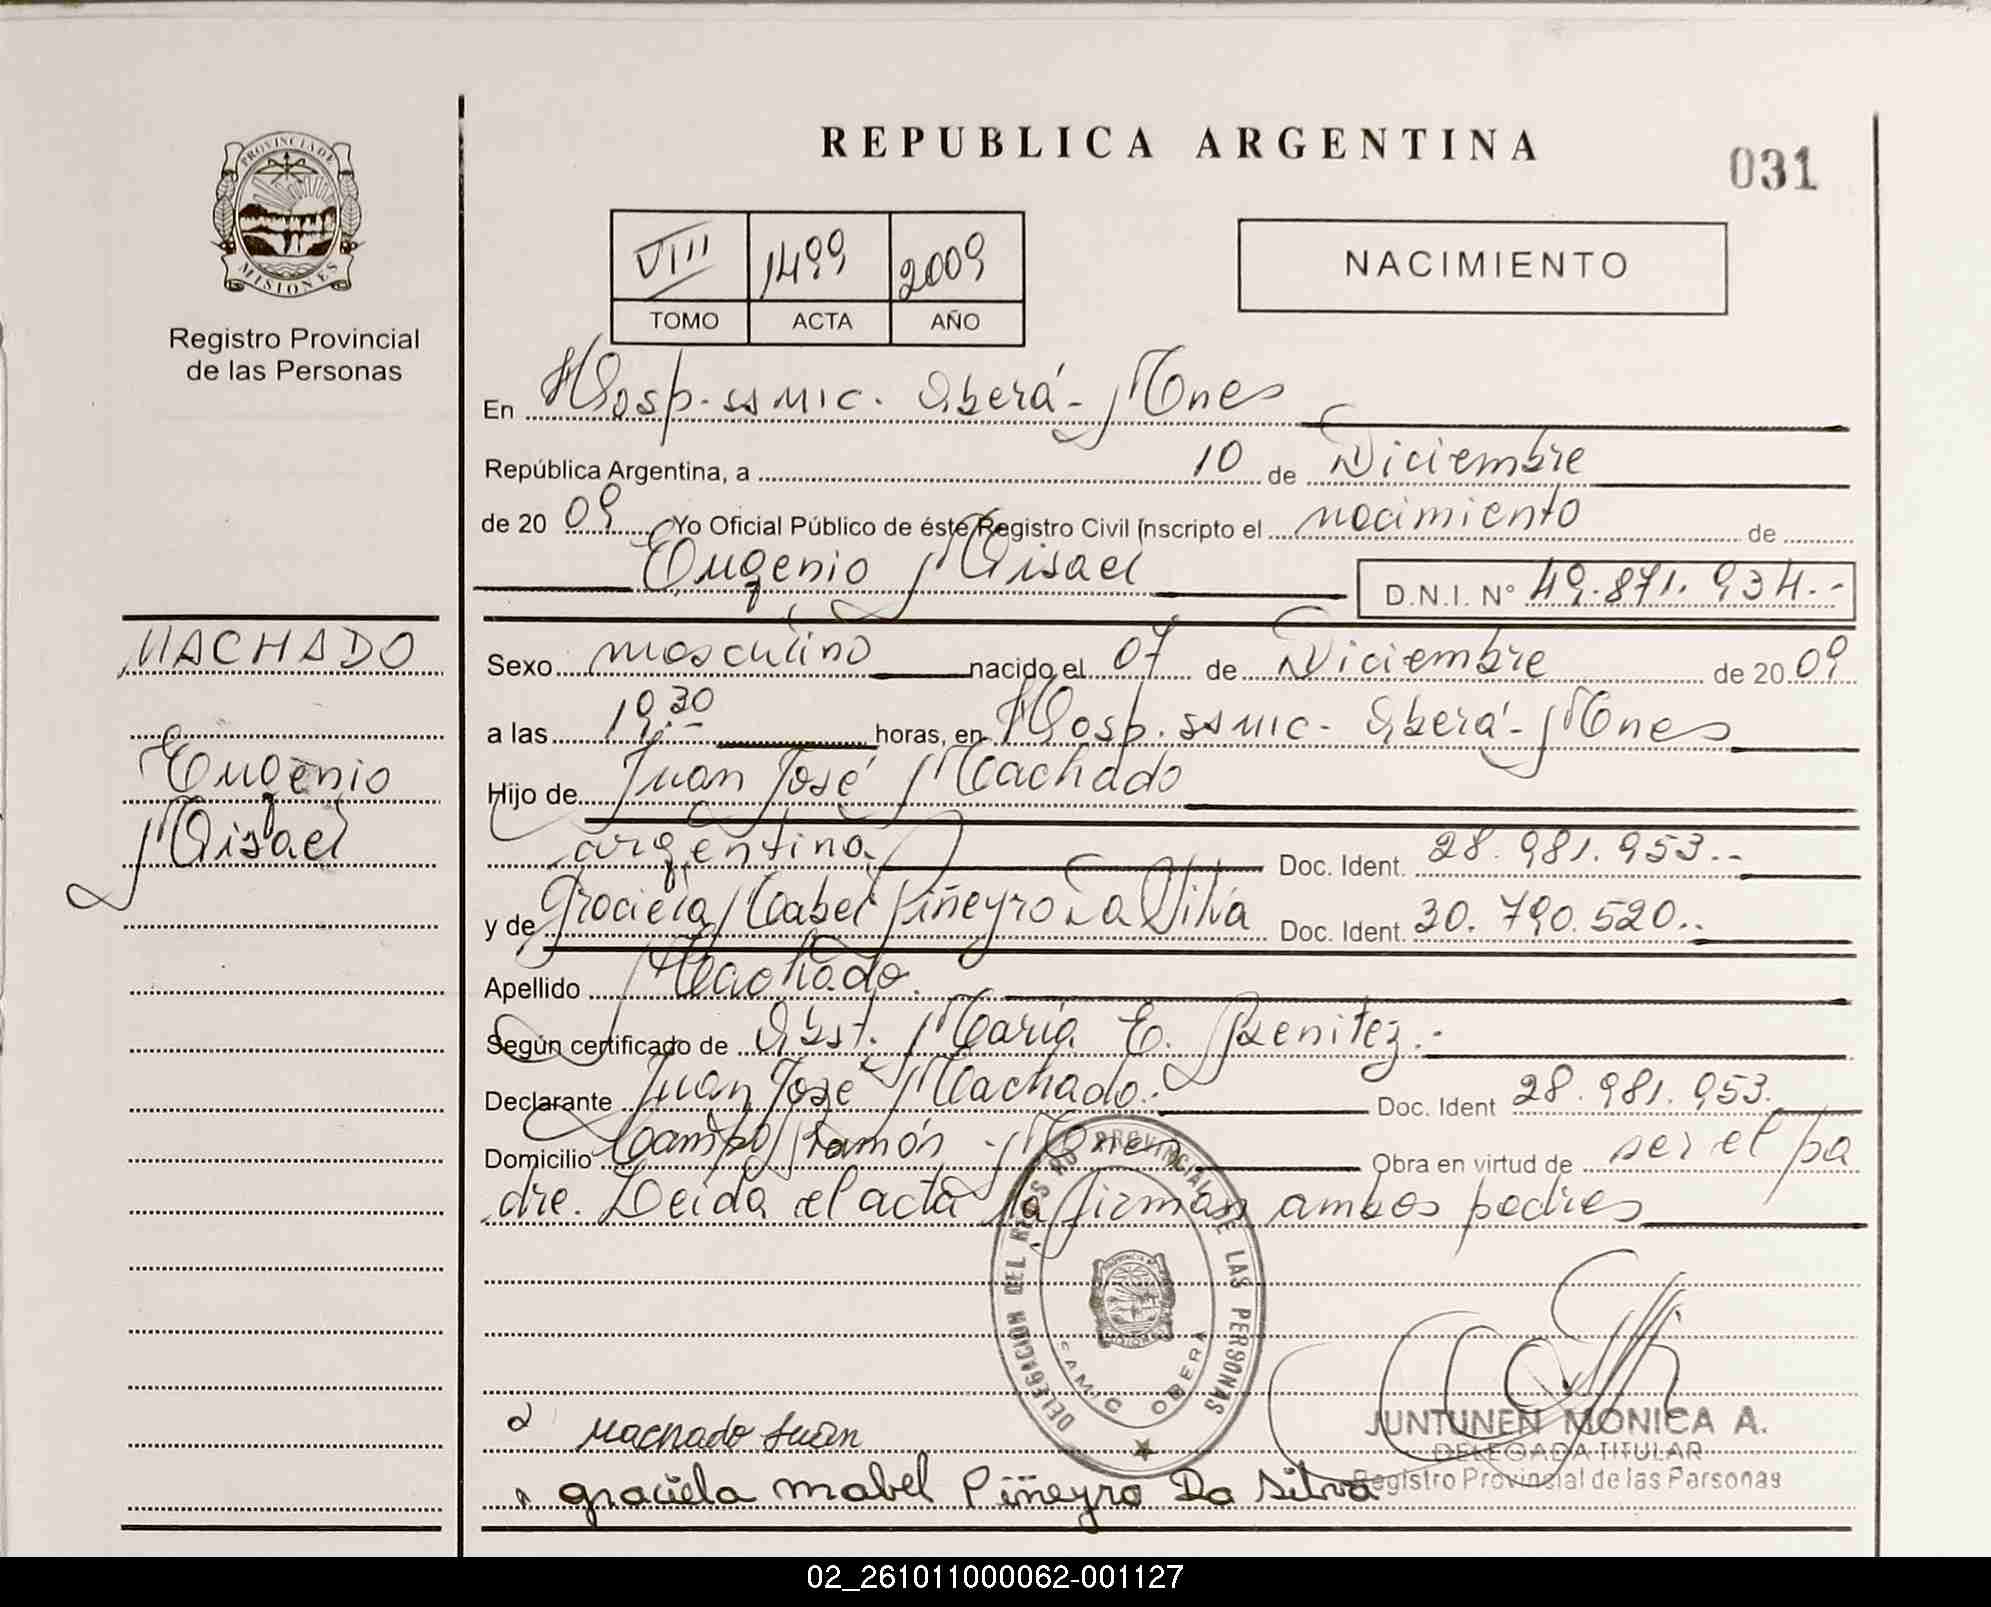 REPUBLICA ARGENTINA
031
PROVINCIA DE
MISIONES
Registro Provincial
de las Personas
VIII 1499 2009
TOMO ACTA AÑO
NACIMIENTO
En Hosp. SAMIC. Oberá - Mnes
República Argentina, a 10 de Diciembre
de 20 09 Yo Oficial Público de éste Registro Civil Inscripto el nacimiento de
Eugenio Misael D.N.I. N° 49.871.934.-
MACHADO
Eugenio
Misael
Sexo masculino nacido el 07 de Diciembre de 20 09
a las 19.30 horas, en Hosp. SAMIC - Oberá - Mnes
Hijo de Juan José Machado
argentina Doc. Ident. 28.981.953.-
y de Graciela Mabel Piñeyro Da Silva Doc. Ident. 30.790.520.-
Apellido Machado.
Según certificado de Obst. María E. Benitez.-
Declarante Juan José Machado.- Doc. Ident 28.981.953.
Domicilio Campo Ramón - Mnes Obra en virtud de ser el pa
dre. Leida el acta la firman ambos padres
DELEGACION DEL REG PROVINCIAL DE LAS PERSONAS
SAMIC OBERA
Machado Juan
JUNTUNEN MONICA A.
DELEGADA TITULAR
Registro Provincial de las Personas
graciela mabel Piñeyro Da Silva
02_261011000062-001127